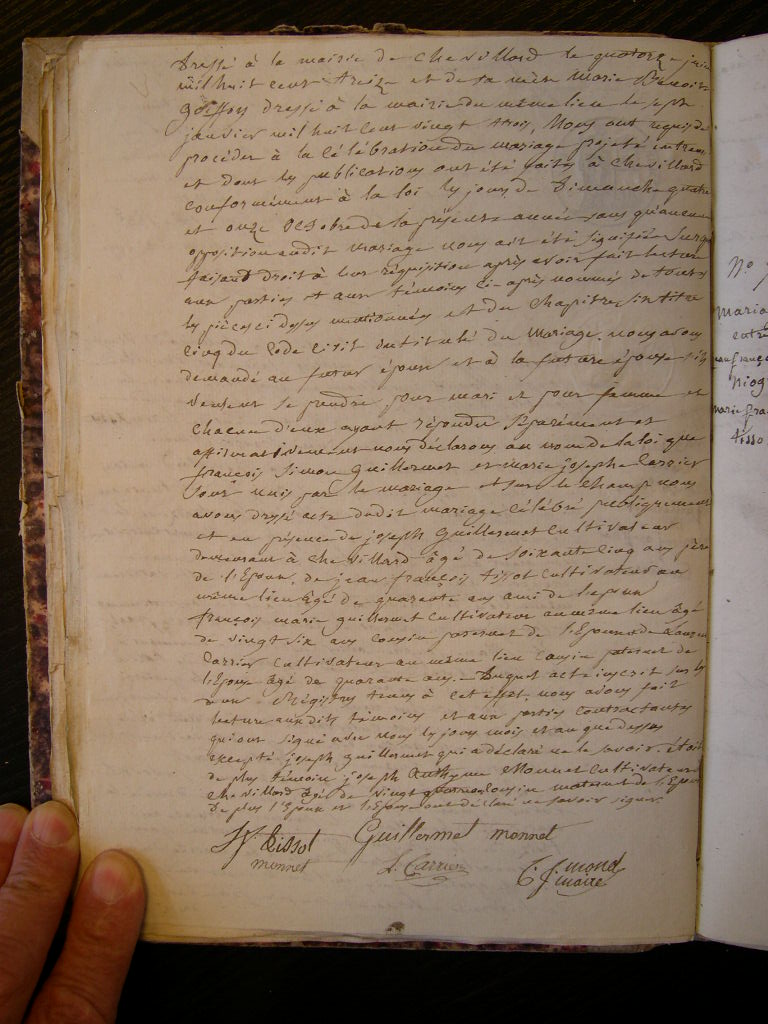 Dressé à la mairie de chevillard le quatorze juin
mil huit cent treize et de sa mère Marie Benoite
goiffon dressé à la mairie du même lieu le sept
janvier mil huit cent vingt trois, Nous ont requis de
procéder à la célébration du mariage projeté entr'eux
et dont les publications ont été faites à chevillard
conformément à la loi les jours de Dimanche quatre
et onze octobre de la présente année sans qu'aucune
opposition audit mariage nous ait été signifiée
faisant droit à leur réquisition après avoir fait lecture
aux parties et aux témoins ci-après nommés de toutes
les pièces ci dessus mentionnées et du chapitre six titre
cinq du code civil intitulé du mariage. nous avons
demandé au futur époux et à la future épouse s'ils
veulent se prendre pour mari et pour femme et
chacun d'eux ayant répondu séparément et
affirmativement nous déclarons au nom de la loi que
françois Simon guillermet et marie josephe Carrier
sont unis par le mariage et sur le champ nous
avons dressé acte dudit mariage célébré publiquement
et en présence de joseph Guillermet cultivateur
demeurant à chevillard âgé de soixante cinq ans père
de l'Epoux, de jean françois tissot cultivateur au
même lieu âgé de quarante ans ami de l'epoux
françois marie guillermet cultivateur au même lieu âgé
de vingt six ans cousin paternel de l'Epoux
Carrier cultivateur au même lieu cousin paternel de
l'Epouse âgé de quarante ans. Duquel acte inscrit sur les
deux Régistres tenus à cet effet, nous avons fait
lecture auxdits témoins et aux parties contractantes
qui ont signé avec nous les jours mois et an que dessus
excepté joseph guillermet qui a déclaré ne le savoir. était
de plus témoin joseph Anthyme Monnet cultivateur
chevillard âgé de vingt cousin maternel de l'Epouse
De plus l'Epoux et l'Epouse ont déclaré ne savoir signer.
tissot Guillermet monnet
monnet Carrier
maire
N°
Maria
entre
jean franço
Niog
marie fra
tisso